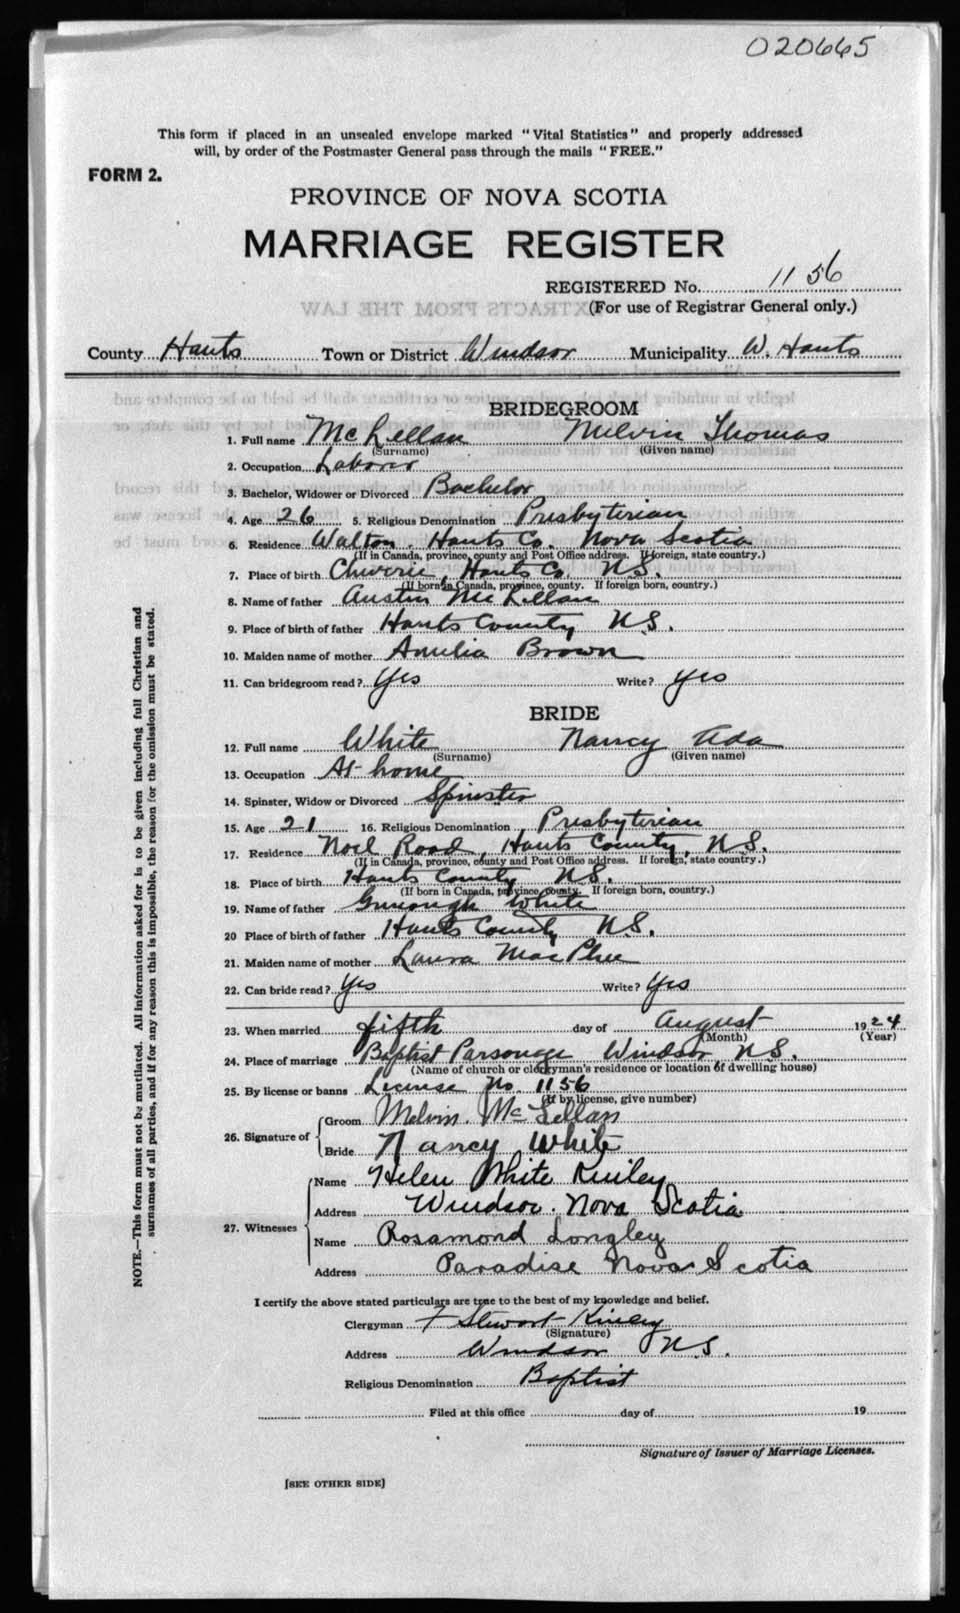 020665
This form if placed in an unsealed envelope marked "Vital Statistics" and properly addressed
will, by order of the Postmaster General pass through the mails "FREE."
FORM 2.
PROVINCE OF NOVA SCOTIA
MARRIAGE REGISTER
REGISTERED No. 1156
(For use of Registrar General only.)
EXTRACTS FROM THE LAW
County Hants Town or District Windsor Municipality W. Hants
BRIDEGROOM
1. Full name McLellan Melvin Thomas
(Surname) (Given name)
2. Occupation Laborer
3. Bachelor, Widower or Divorced Bachelor
4. Age 26 5. Religious Denomination Presbyterian
6. Residence Walton. Hants Co. Nova Scotia
(If in Canada, province, county and Post Office address. If foreign, state country.)
7. Place of birth Cheverie, Hants Co N.S.
(If born in Canada, province, county. If foreign born, country.)
8. Name of father Austin McLellan
9. Place of birth of father Hants County N.S.
10. Maiden name of mother Amelia Brown
11. Can bridegroom read? Yes Write? Yes
BRIDE
12. Full name White Nancy Ada
(Surname) (Given name)
13. Occupation At home
14. Spinster, Widow or Divorced Spinster
15. Age 21 16. Religious Denomination Presbyterian
17. Residence Noel Road, Hants County, N.S.
(If in Canada, province, county and Post Office address. If foreign, state country.)
18. Place of birth Hants County N.S.
(If born in Canada, province, county. If foreign born, country.)
19. Name of father White
20 Place of birth of father Hants County N.S.
21. Maiden name of mother Laura MacPhee
22. Can bride read? Yes Write? Yes
23. When married fifth day of August 1924
(Month) (Year)
24. Place of marriage Baptist Parsonage Windsor, N.S.
(Name of church or clergyman's residence or location of dwelling house)
25. By license or banns License No. 1156
(If by license, give number)
26. Signature of Groom Melvin. McLellan
Bride Nancy White
27. Witnesses Name Helen White Kinley
Address Windsor. Nova Scotia
Name Rosamond Longley
Address Paradise Nova Scotia
I certify the above stated particulars are true to the best of my knowledge and belief.
Clergyman F Stewart Kinley
(Signature)
Address Windsor N.S.
Religious Denomination Baptist
Filed at this office day of 19
Signature of Issuer of Marriage Licenses.
[SEE OTHER SIDE]
NOTE.—This form must not be mutilated. All information asked for is to be given including full Christian and
surnames of all parties, and if for any reason this is impossible, the reason for the omission must be stated.